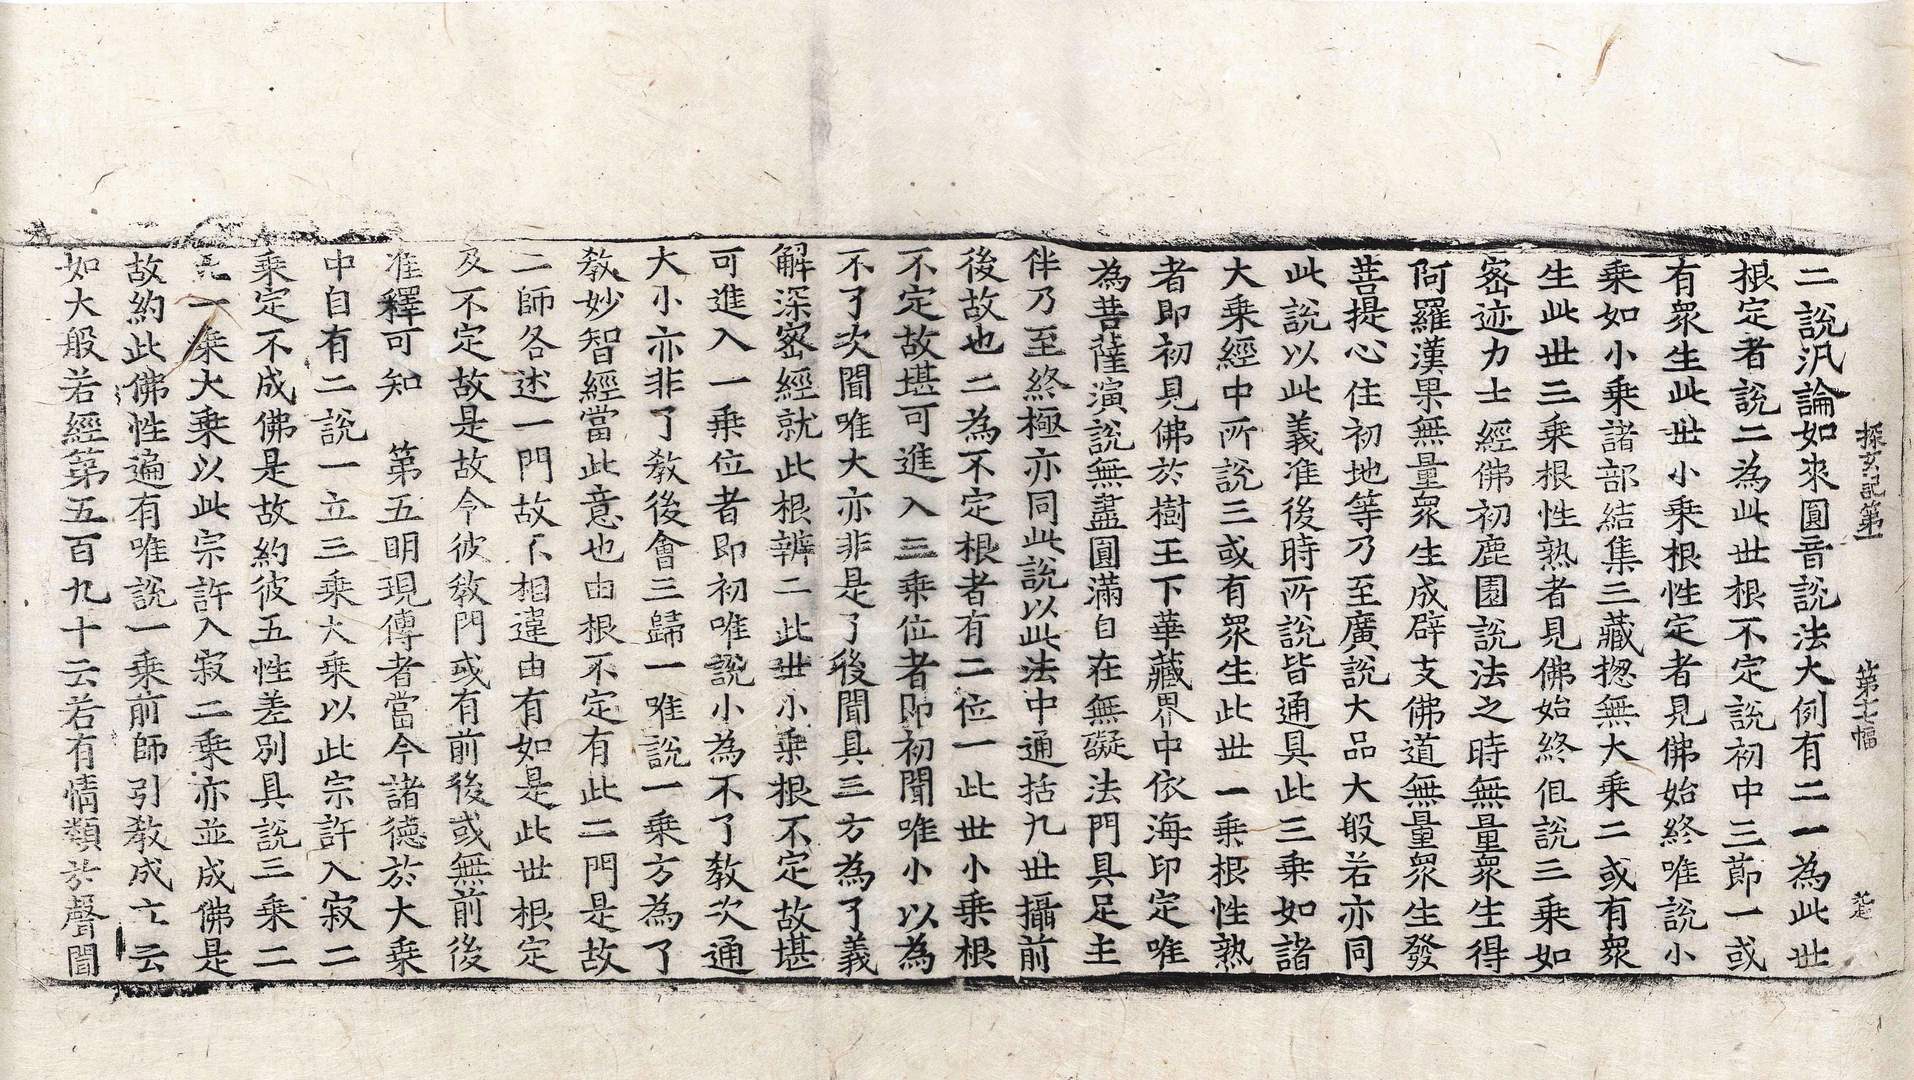 探玄記第一 第十七幅
二說汎論如來圓音說法大例有二一為此世
根定者說二為此世根不定說初中三節一或
有衆生此世小乗根性定者見佛始終唯說小
乗如小乗諸部結集三藏揔無大乗二或有衆
生此世三乗根性熟者見佛始終但說三乗如
宻迹力士經佛初鹿園說法之時無量衆生得
阿羅漢果無量衆生成辟支佛道無量衆生發
菩提心住初地等乃至廣說大品大般若亦同
此說以此義准後時所說皆通具此三乗如諸
大乗經中所說三或有衆生此世一乗根性熟
者即初見佛於樹王下華藏界中依海印定唯
為菩薩演說無盡圓滿自在無礙法門具足主
伴乃至終極亦同此說以此法中通括九世攝前
後故也二為不定根者有二位一此世小乗根
不定故堪可進入三乗位者即初聞唯小以為
不了次聞唯大亦非是了後聞具三方為了義
解深宻經就此根辨二此世小乗根不定故堪
可進入一乗位者即初唯說小為不了教次通
大小亦非了教後會三歸一唯說一乗方為了
教妙智經當此意也由根不定有此二門是故
二師各述一門故不相違由有如是此世根定
及不定故是故今彼教門或有前後或無前後
准釋可知 第五明現傳者當今諸德於大乗
中自有二說一立三乗大乗以此宗許入寂二
乗定不成佛是故約彼五性差別具說三乗二
一乗大乗以此宗許入寂二乗亦並成佛是
故約此佛性遍有唯說一乗前師引教成立云
如大般若經第五百九十云若有情類於聲聞